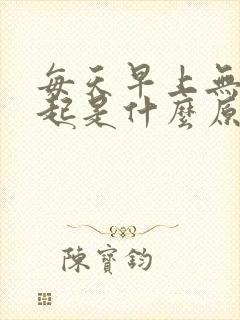 每天早上無
起是什麼原
陳寶鈞